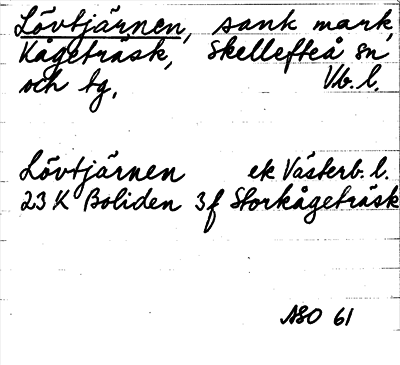 Lövtjärnen, sank mark,
Kågeträsk, Skellefteå sn
och tg. Vb. l.
Lövtjärnen ek Västerb. l.
23 K Boliden 3f Storkågeträsk
ASO 61